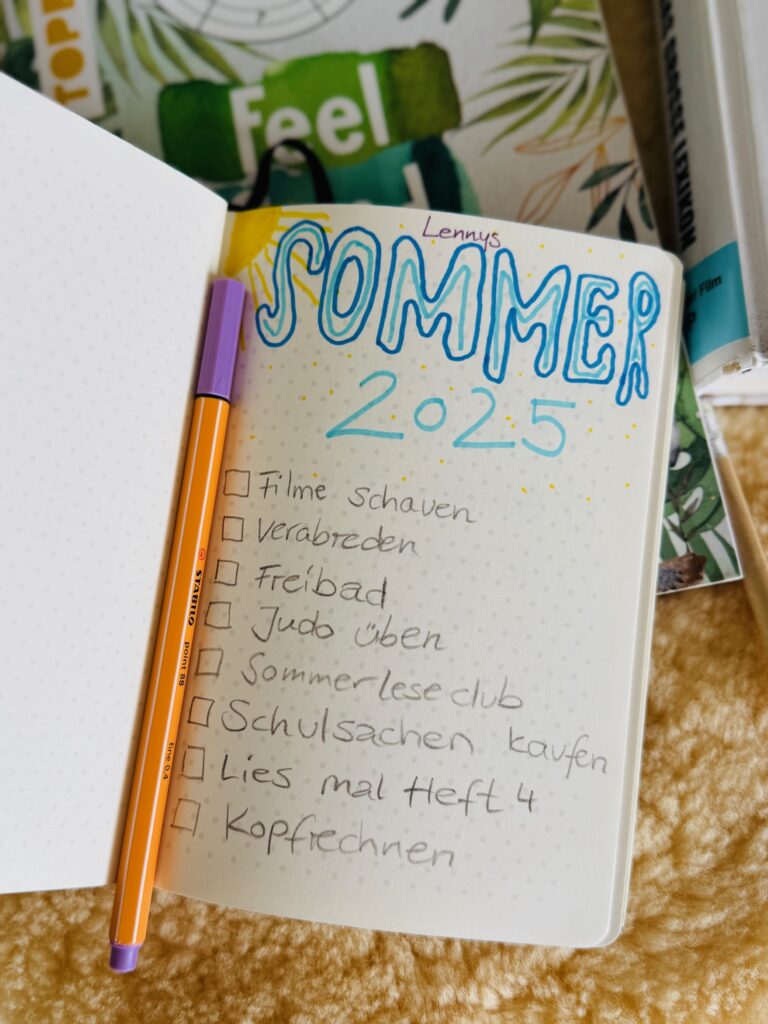 TOPP
Feel
DAS GROSSE LEXIKON
Film
Lennys
SOMMER
2025
Filme schauen
Verabreden
Freibad
Judo üben
Sommerleseclub
Schulsachen kaufen
Lies mal Heft 4
Kopfrechnen
STABILO point 88 fine 0.4